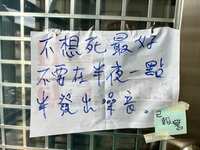 不想死最好
不要在半夜一點
半發出噪音.
已報警